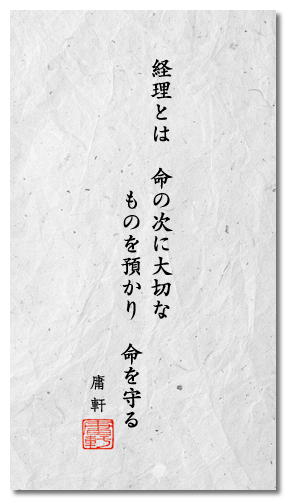 経理とは　命の次に大切な
ものを預かり　命を守る
庸軒